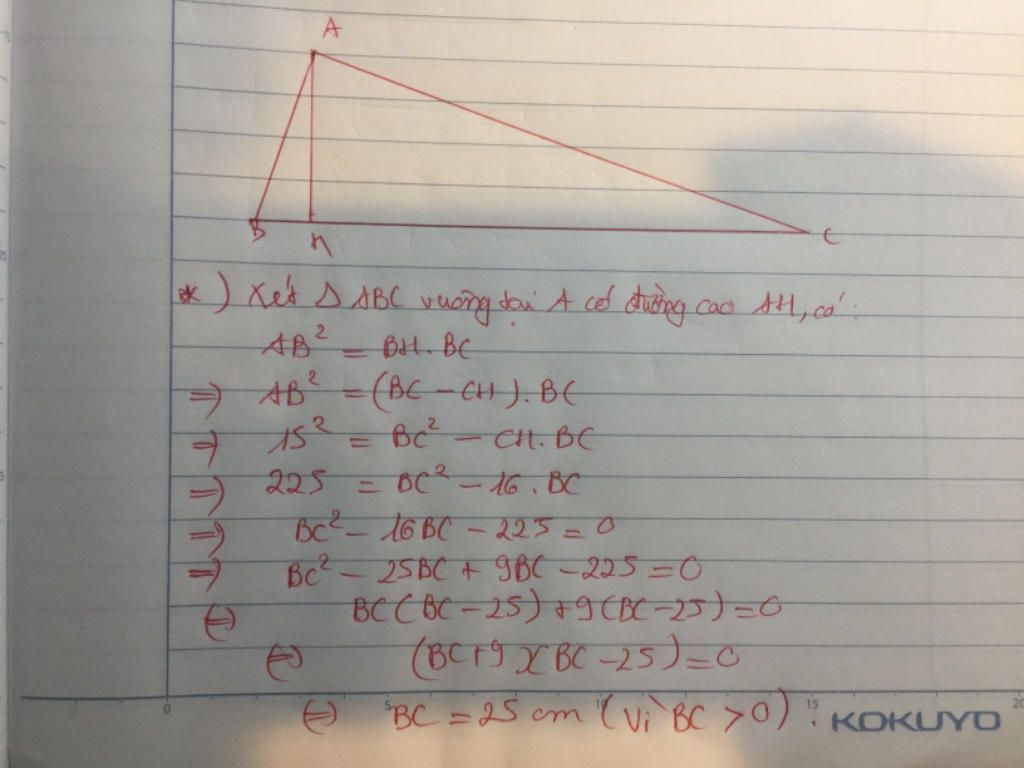 A
B H C
*) Xét Δ ABC vuông tại A có đường cao AH, có:
AB² = BH.BC
=> AB² = (BC - CH).BC
=> 15² = BC² - CH.BC
=> 225 = BC² - 16.BC
=> BC² - 16BC - 225 = 0
=> BC² - 25BC + 9BC - 225 = 0
<=> BC(BC - 25) + 9(BC - 25) = 0
<=> (BC + 9)(BC - 25) = 0
<=> BC = 25 cm (vì BC > 0).
0 5 10 15 20
KOKUYO